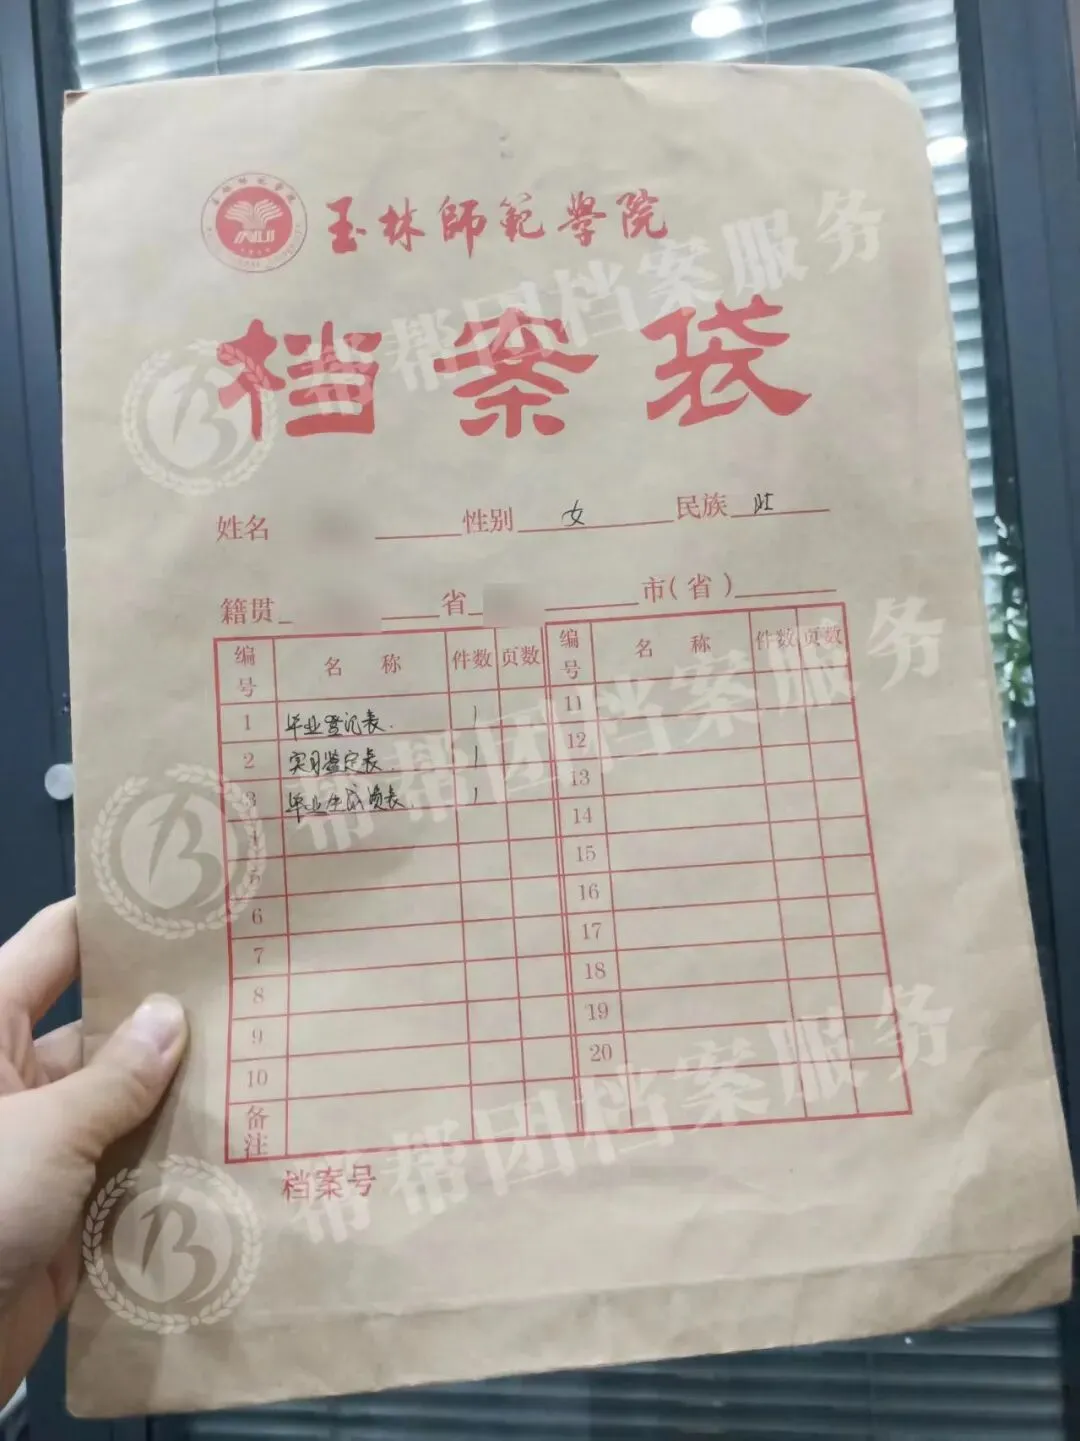 玉林師範學院
档案袋
姓名 性别 女 民族 壮
籍贯 省 市(省)
编号 名称 件数 页数 编号 名称 件数 页数
1 毕业登记表. 1 11
2 实习鉴定表. 1 12
3 毕业生成绩表. 1 13
4 14
5 15
6 16
7 17
8 18
9 19
10 20
备注
档案号
帮帮团档案服务
帮帮团档案服务
帮帮团档案服务